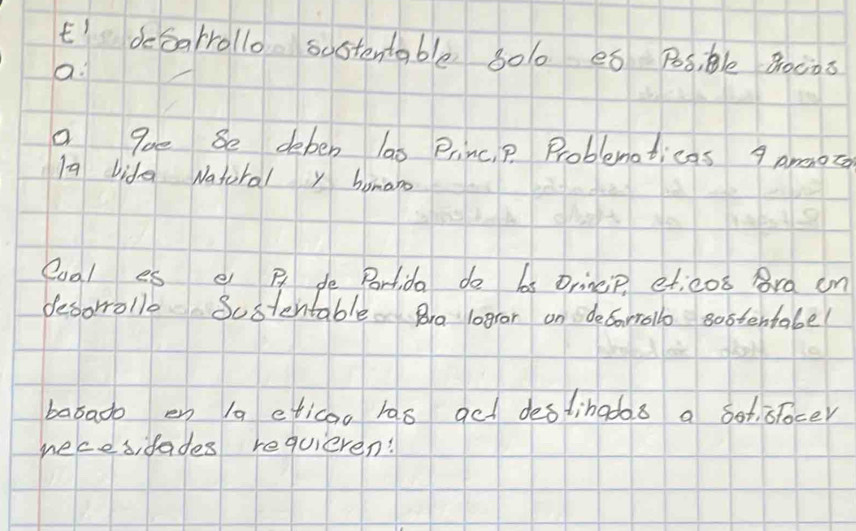 El desarrollo sustentable solo es Posible Grocias
a:
a que se deben las Princip. Problematicas q
la vida Natural y humano
Cual es el P. de Partida de los Princip. eticos Para un
desarrollo Sustentable Para lograr un desarrollo sostentabel
basado en la etica, las act destinados a satisfacer
necesidades requieren: